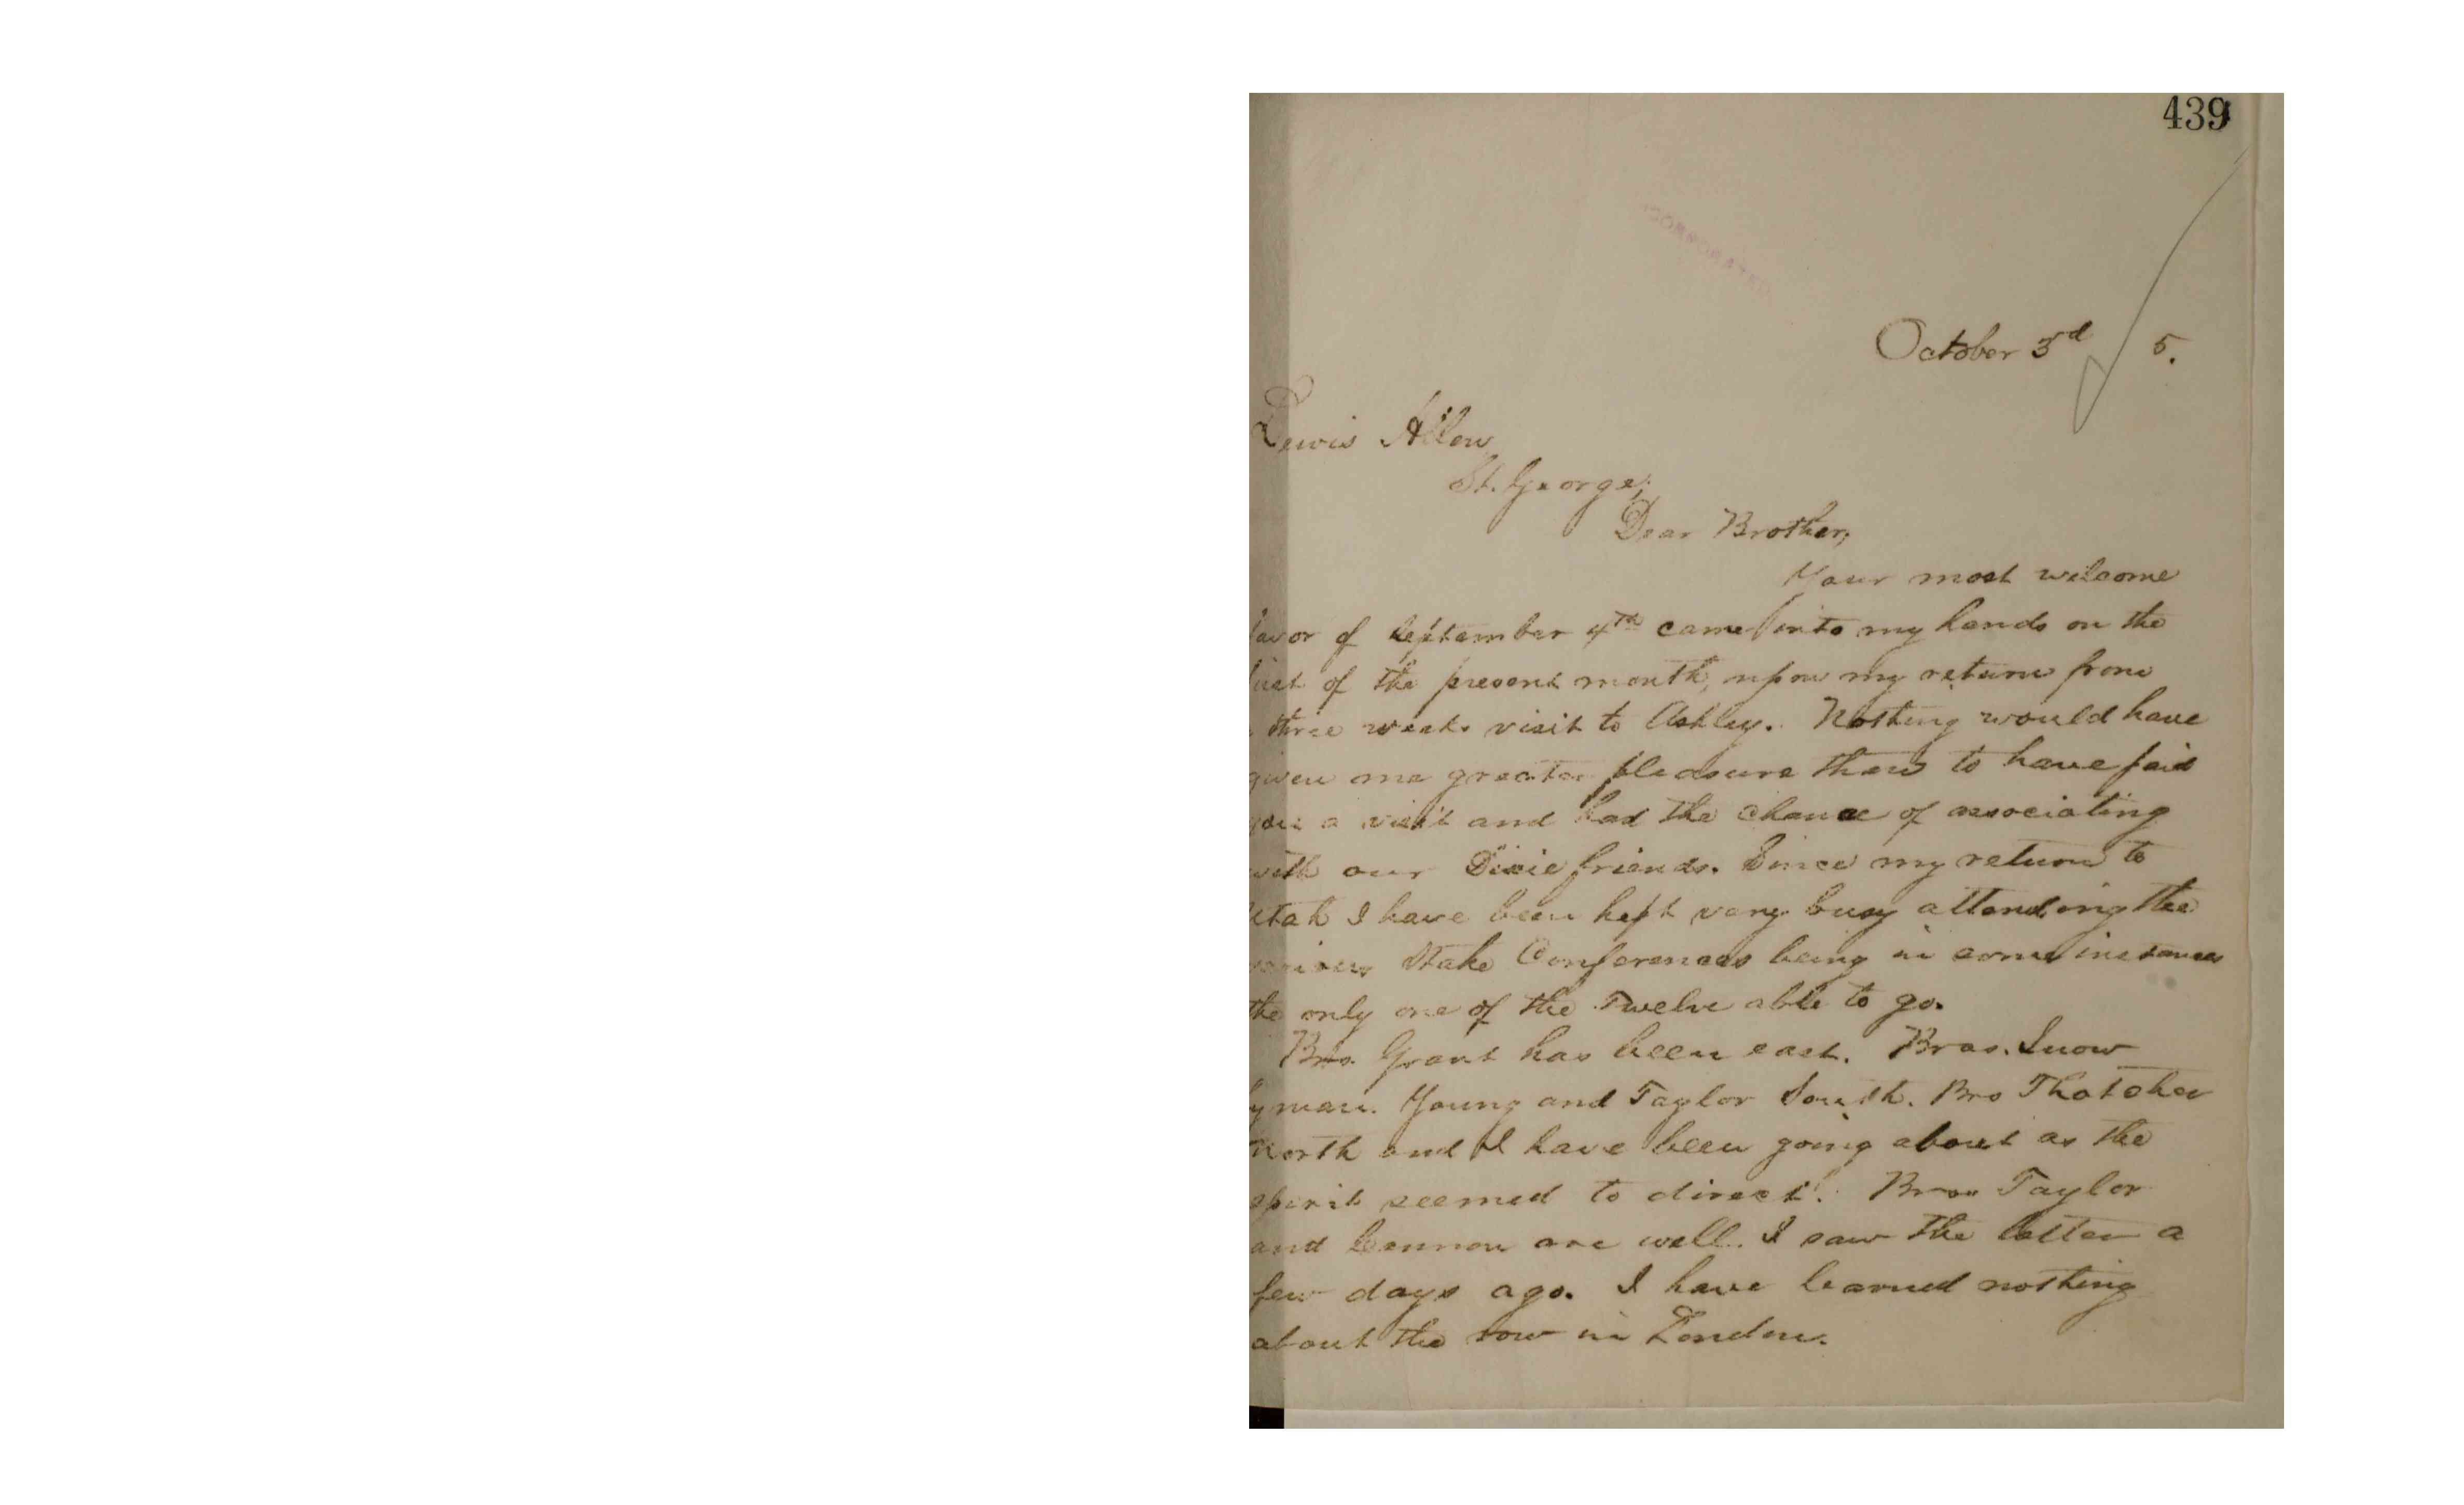 439
October 3rd 5.
Lewis Allen
St. George;
Dear Brother,
Your most welcome
favor of September 4th came into my hands on the
first of the present month, upon my return from
three weeks visit to Ashley. Nothing would have
given me greater pleasure than to have paid
you a visit and had the chance of associating
with our Dixie friends. Since my return to
Utah I have been kept very busy attending the
various Stake Conferences being in some instances
the only one of the Twelve able to go.
Bro. Grant has been east. Bros. Snow
Lyman. Young and Taylor South. Bro Thatcher
North and I have been going about as the
spirit seemed to direct. Bros Taylor
and Cannon are well. I saw the latter a
few days ago. I have learned nothing
about the row in London.